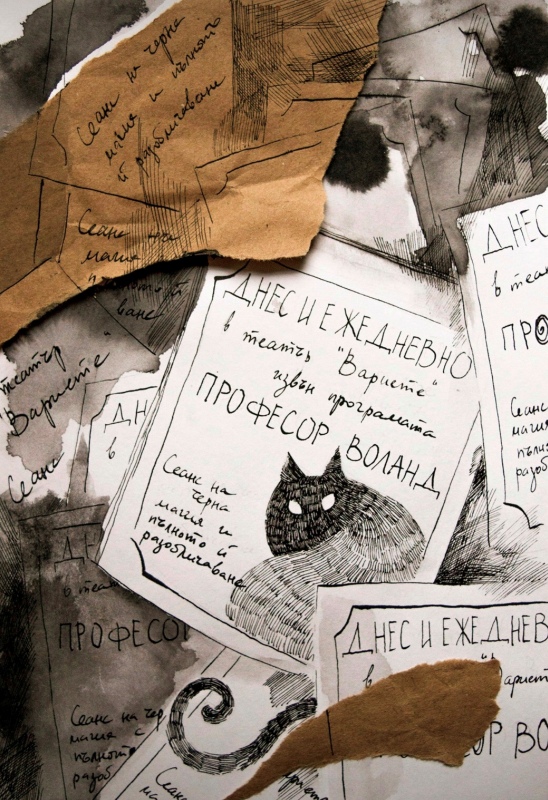 Сеанс на черна
магия и пълното
ѝ разобличаване
Сеанс на
магия
пълното й
ване
театър
"Вариете"
Сеанс
ДНЕС И ЕЖЕДНЕВНО
в театъ "Вариете"
извън програмата
ПРОФЕСОР ВОЛАНД
Сеанс на
черна
магия и
пълното ѝ
разобличаване
ДНЕС
в теа
ПРО
Сеанс
магия
пълно
разоб
ДН
в
ДН
в теа
ПРОФЕСОР
Сеанс на чер
магия с
пълното
разоб
ДНЕС И ЕЖЕДНЕВ
в
Вариет
ОР ВО
Сеанс